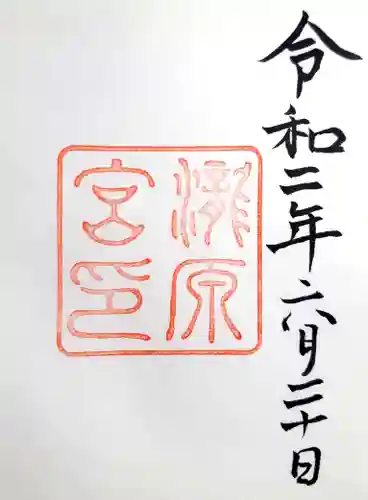 令和二年六月二十日
瀧原
宮印